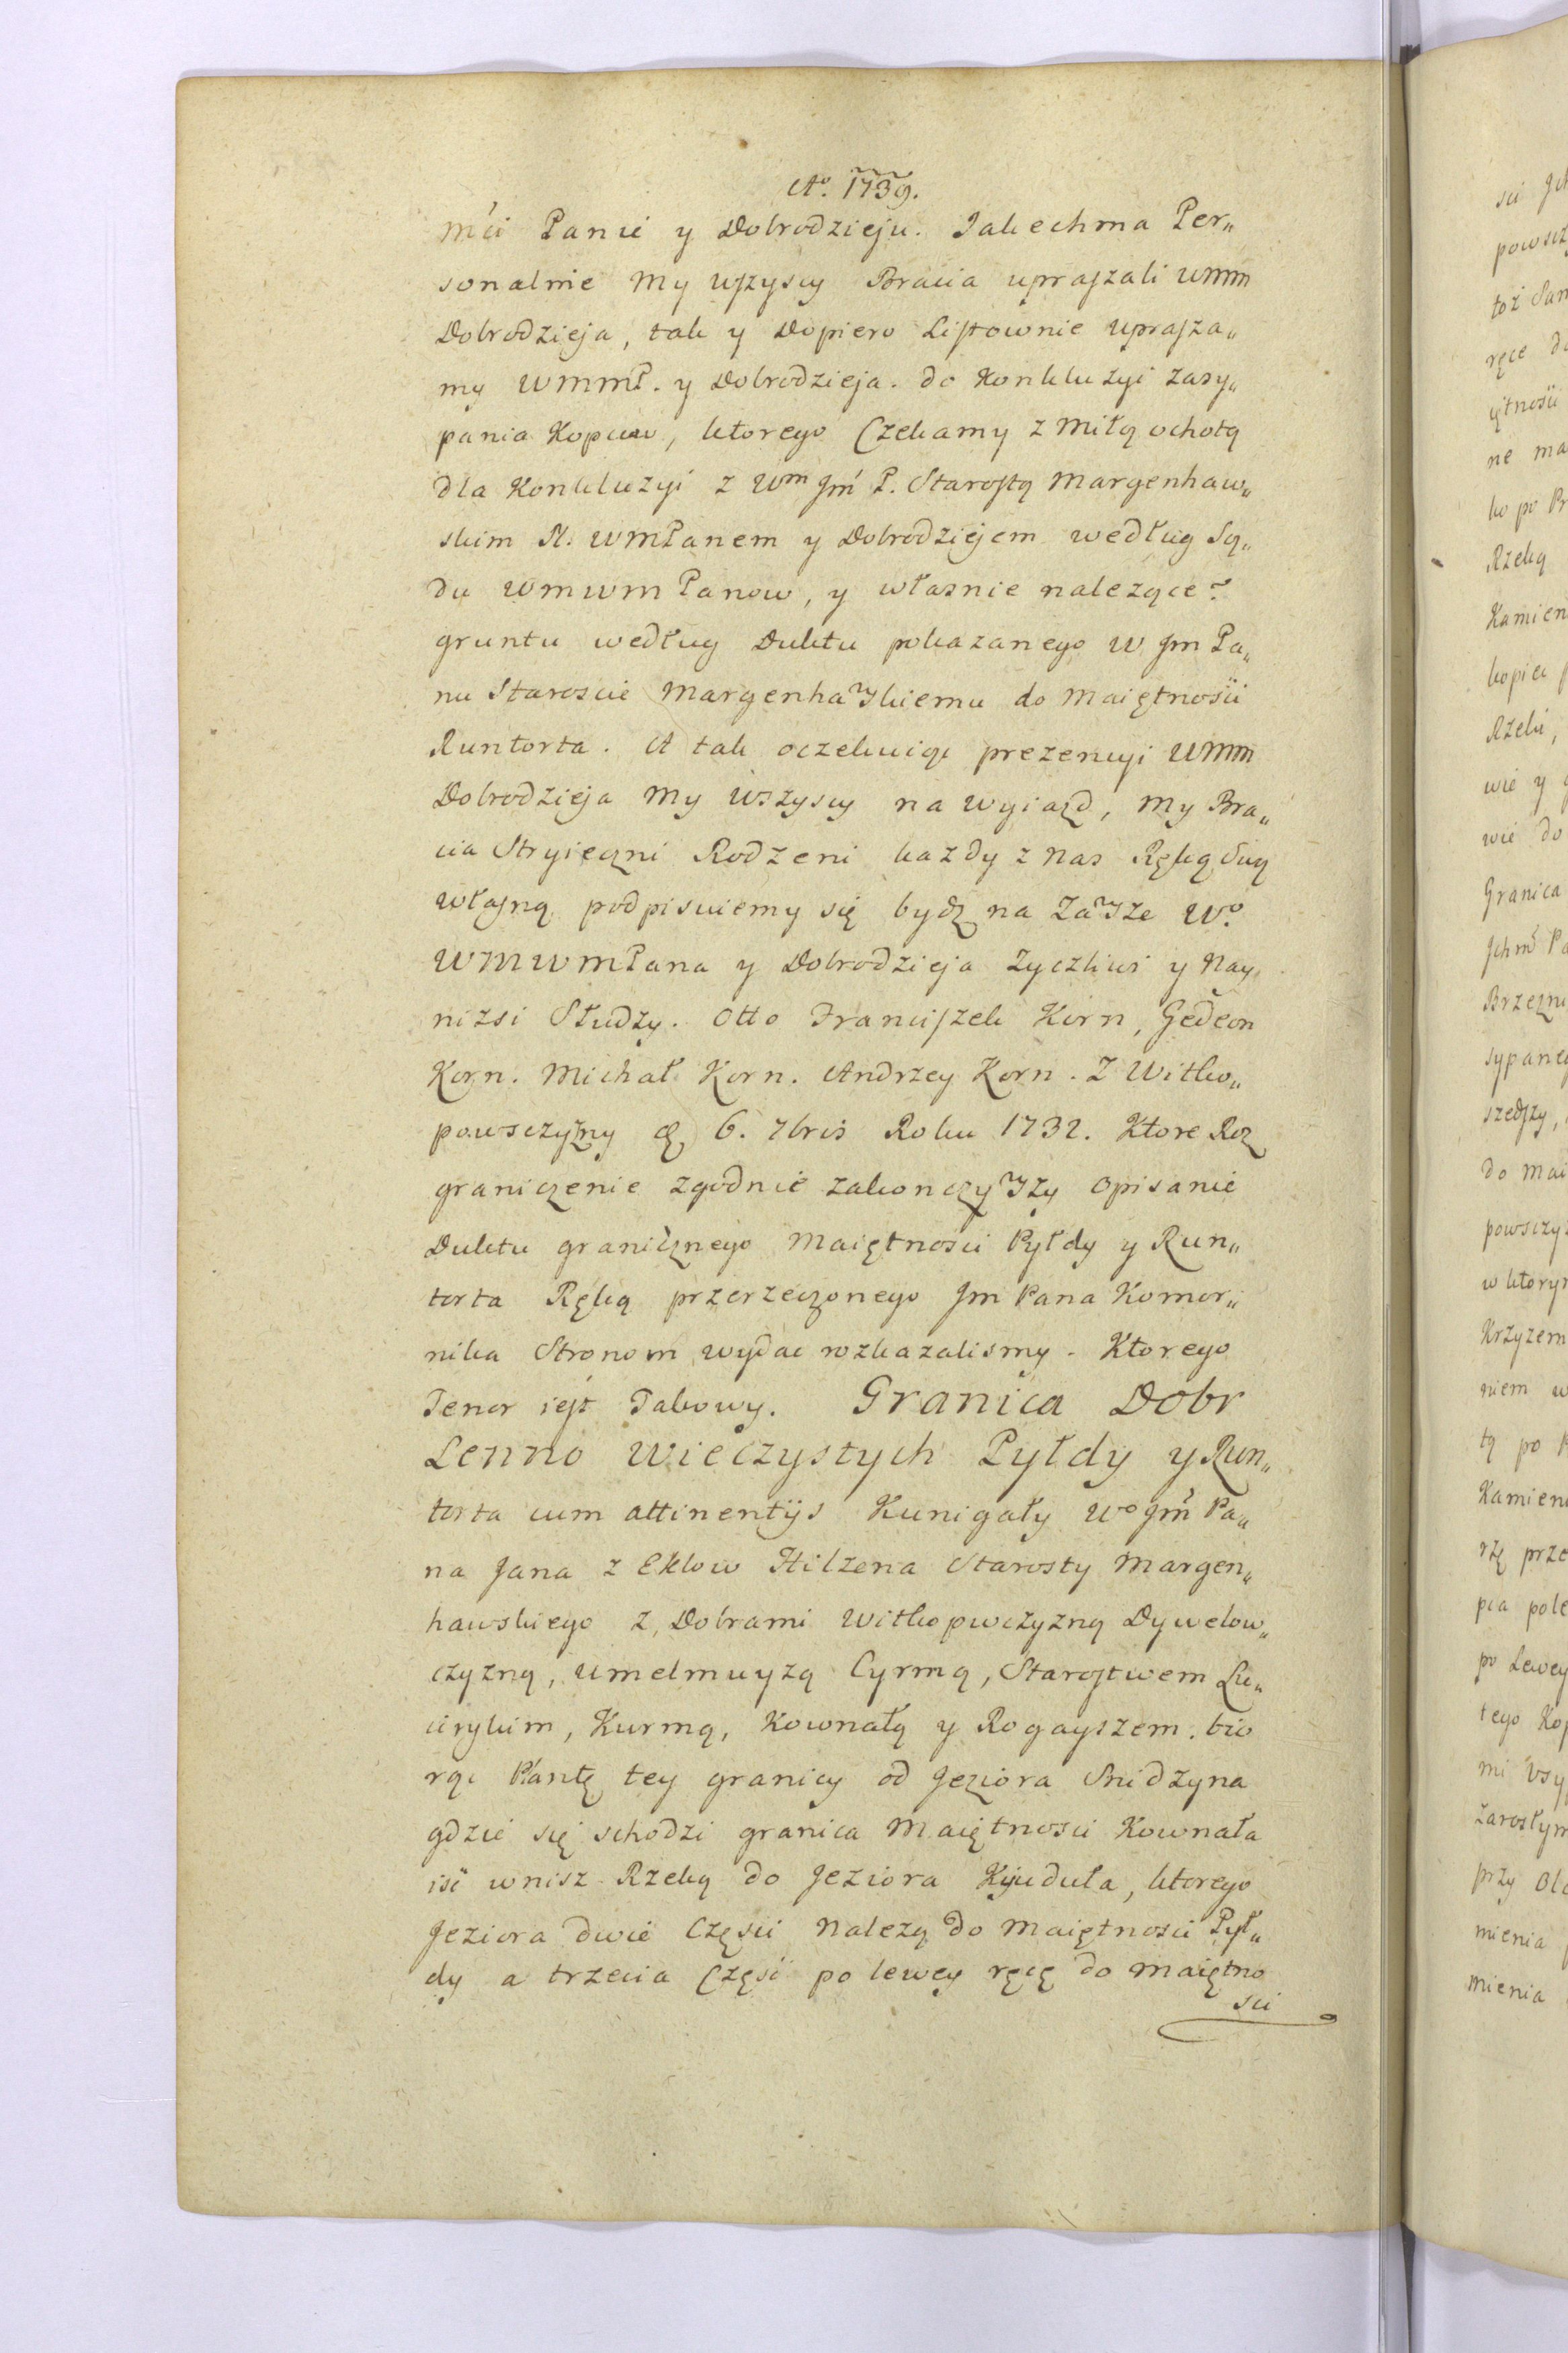 Ao. 1739.
Mci Panie y Dobrodzieju. Jakechma Per„
sonalnie My wszyscy Bracia upraszali WMM
Dobrodzieja, tak y Dopiero Listownie uprasza„
my WMMP. y Dobrodzieja. do Konkluzyi zasy„
pania Kopcow, ktorego Czekamy z Miłą ochotą
dla Konkluzyi z Wm Jm P. Starostą Margenhaw„
skim N. WMPanem y Dobrodziejem według Są„
du WMWM Panow, y własnie należące°
gruntu według Duktu pokazanego W Jm Pa„
nu Staroscie Margenhawskiemu do Maiętnosci
Runtorta. A tak oczekuiąc prezencyi WMM
Dobrodzieja My wszyscy na wyiazd, My Bra„
cia Stryieczni Rodzeni każdy z Nas Ręką Swą
własną podpisuiemy się bydz na Zawsze Wo.
WMWMPana y Dobrodzieja Zyczliwi y Nay„
nizsi Słudzy. Otto Franciszek Korn, Gedeon
Korn. Michał Korn. Andrzey Korn. Z Witko„
powszczyzny d. 6. 7bris Roku 1732. Ktore Roz
graniczenie zgodnie zakonczywszy Opisanie
Duktu granicznego Maiętnosci Pyłdy y Run„
torta Ręką przerzeczonego Jm Pana Komor„
nika Stronom wydac rozkazalismy. Ktorego
Tenor iest Takowy. Granica Dobr
Lenno Wieczystych Pyłdy y Run„
torta cum attinentijs Kunigały Wo Jm Pa„
na Jana z Eklow Hilzena Starosty Margen„
hawskiego z Dobrami Witkopwczyzną Dywelow„
czyzną, Umelmuyzą Cyrmą, Starostwem Lu„
cirskim, Kurmą, Kownatą y Rogayszem. bio
rąc Pantę tey granicy od Jeziora Snidzyna
gdzie się schodzi granica Maiętnosci Kownata
isc wnisz Rzeką do Jeziora Kijuduła, ktorego
Jeziora dwie Częsci Należą do Maiętnosci Pył„
dy a trzecia Częsc po lewey ręcę do Maiętno
sci